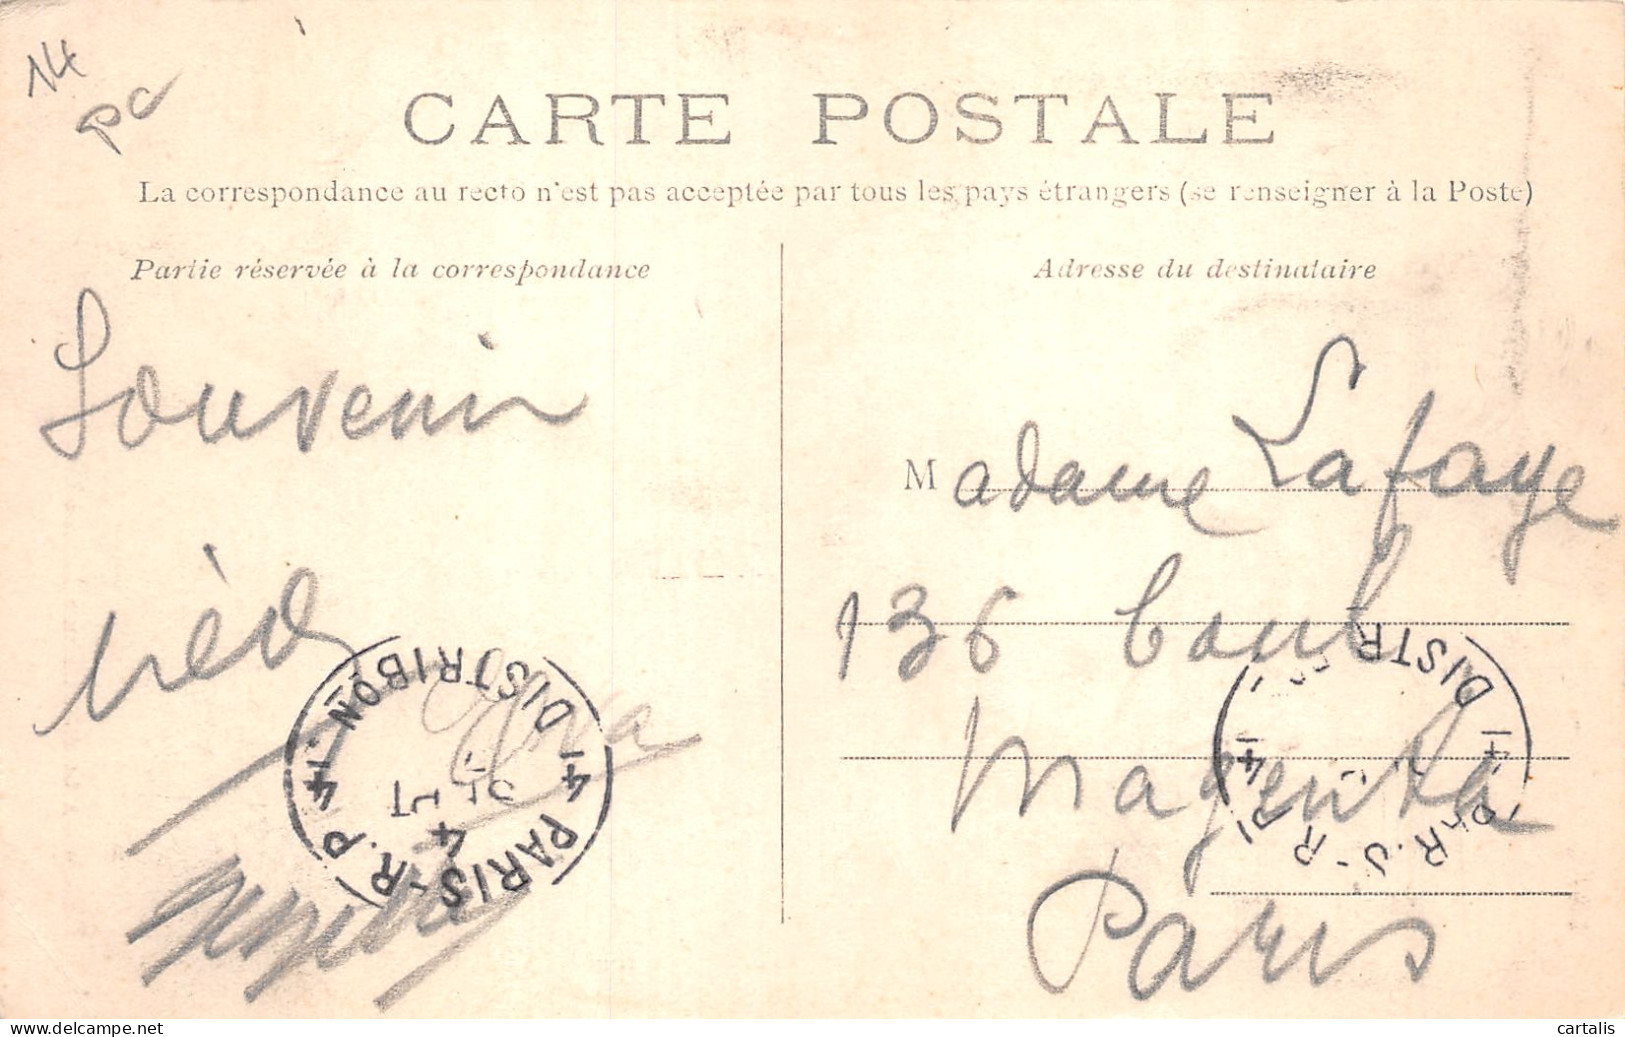 14
pc
CARTE POSTALE
La correspondance au recto n'est pas acceptée par tous les pays étrangers (se renseigner à la Poste)
Partie réservée à la correspondance
Souvenir
Adresse du destinataire
Madame Lafaye
136 boul
Magenta
Paris
PARIS-R.P
DISTRIBON
14
4
PARIS-R.P
DISTR
14
cartalis